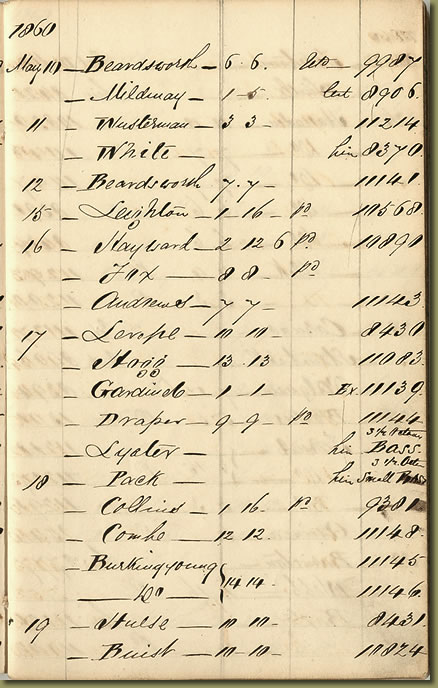 1860
May 10 — Beardsworth — 6 . 6 . 9987
— Mildmay — 1 — 5 . 8906
11 — Wusterman — 3 3 — 11214
— White him 8370
12 — Beardsworth 7 . 7 — 11141 .
15 — Leighton — 1 — 16 — pd 10568
16 — Hayward — 2 12 6 pd 10890
— Fox — 8 8 — pd
— Andrews — 7 7 — 11143
17 — — 10 10 — 8430
— Hogg — 13 . 13 11083
— — 1 — 1 — Ex 11139
— Draper — 9 — 9 — pd 11144
3 1/2
— Lyster — him Bass
3 1/2
18 — Pack — him Small Bass
— Collins 1 . 16 — pd 9381
— Combe — 12 12 11148
— Burkingyoung 11145
— Do — } 14 14 . 11146
19 — Hulse — 10 10 — 8431
— Buist — 10 — 10 — 10824